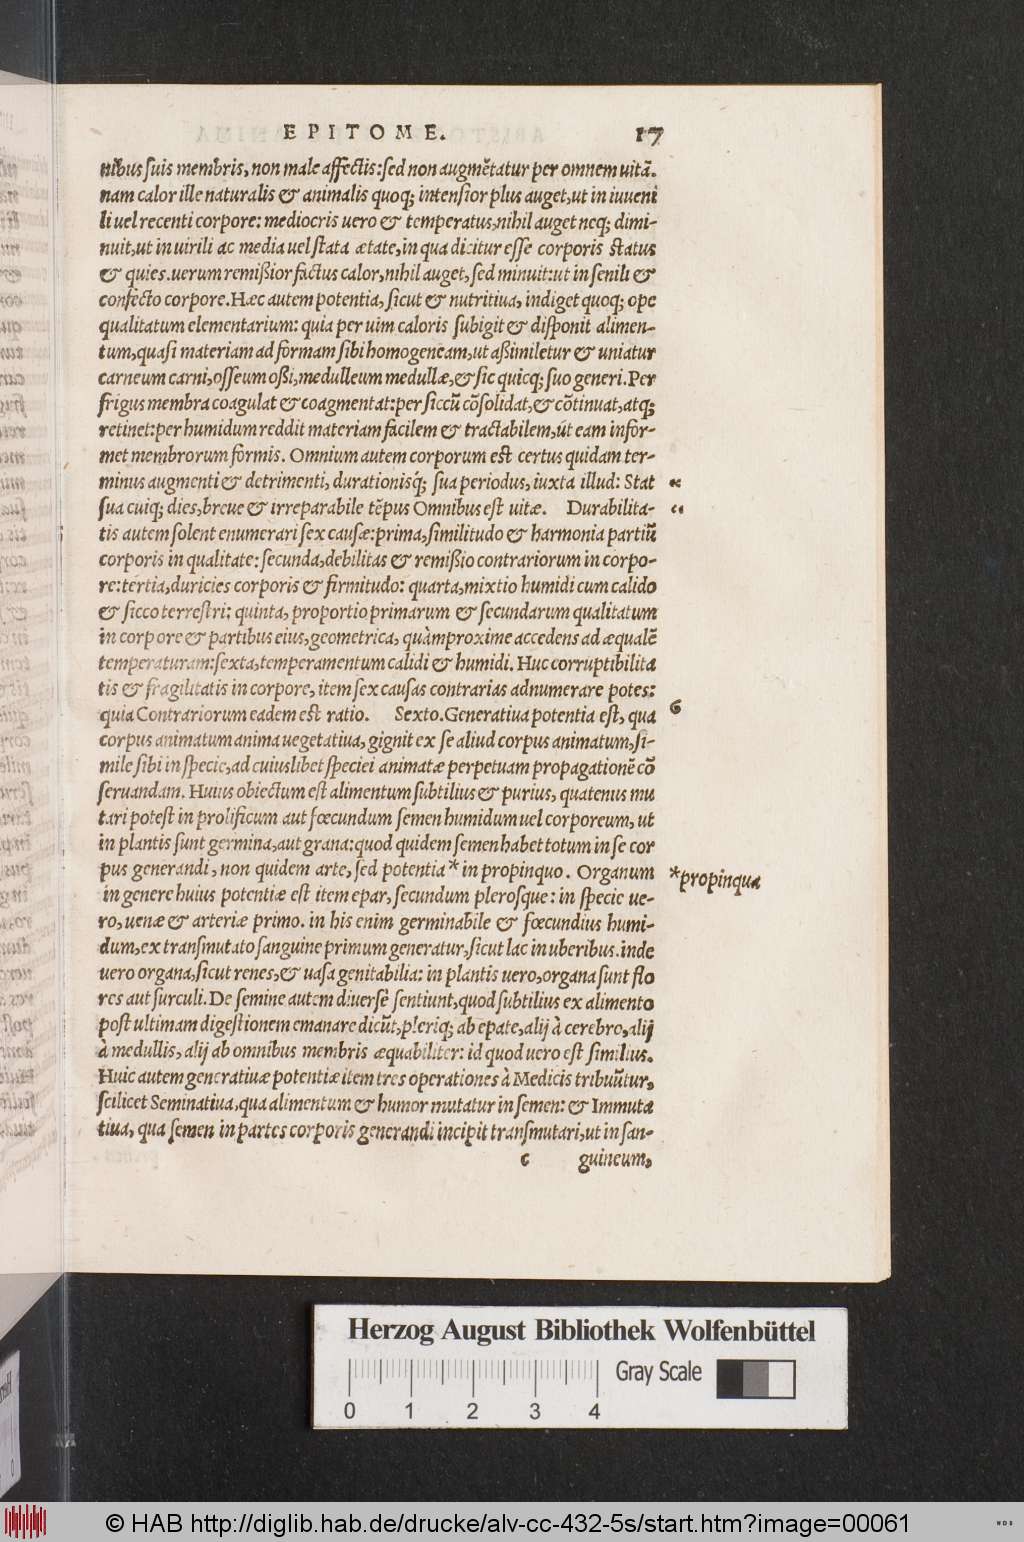 EPITOME. 17
nibus suis membris, non male affectis: sed non augmẽtatur per omnem uitã.
nam calor ille naturalis & animalis quoq; intensior plus auget, ut in iuueni
li uel recenti corpore: mediocris uero & temperatus, nihil auget neq; dimi-
nuit, ut in uirili ac media uel stata ætate, in qua dicitur esse corporis status
& quies. uerum remißior factus calor, nihil auget, sed minuit: ut in senili &
confecto corpore. Hæc autem potentia, sicut & nutritiua, indiget quoq; ope
qualitatum elementarium: quia per uim caloris subigit & disponit alimen-
tum, quasi materiam ad formam sibi homogeneam, ut aßimiletur & uniatur
carneum carni, osseum oßi, medulleum medullæ, & sic quicq; suo generi. Per
frigus membra coagulat & coagmentat: per siccũ cõsolidat, & cõtinuat, atq;
retinet: per humidum reddit materiam facilem & tractabilem, ut eam infor-
met membrorum formis. Omnium autem corporum est certus quidam ter-
minus augmenti & detrimenti, durationisq́; sua periodus, iuxta illud: Stat
sua cuiq; dies, breue & irreparabile tẽpus Omnibus est uitæ. Durabilita-
tis autem solent enumerari sex causæ: prima, similitudo & harmonia partiũ
corporis in qualitate: secunda, debilitas & remißio contrariorum in corpo-
re: tertia, duricies corporis & firmitudo: quarta, mixtio humidi cum calido
& sicco terrestri: quinta, proportio primarum & secundarum qualitatum
in corpore & partibus eius, geometrica, quàm proxime accedens ad æqualẽ
temperaturam: sexta, temperamentum calidi & humidi. Huc corruptibilita
tis & fragilitatis in corpore, item sex causas contrarias adnumerare potes:
quia Contrariorum eadem est ratio. Sexto. Generatiua potentia est, qua
6
corpus animatum anima uegetatiua, gignit ex se aliud corpus animatum, si-
mile sibi in specie, ad cuiuslibet speciei animatæ perpetuam propagationẽ cõ
seruandam. Huius obiectum est alimentum subtilius & purius, quatenus mu
tari potest in prolificum aut fœcundum semen humidum uel corporeum, ut
in plantis sunt germina, aut grana: quod quidem semen habet totum in se cor
pus generandi, non quidem arte, sed potentia * in propinquo. Organum
*propinqua
in genere huius potentiæ est item epar, secundum plerosque: in specie ue-
ro, uenæ & arteriæ primo. in his enim germinabile & fœcundius humi-
dum, ex transmutato sanguine primum generatur, sicut lac in uberibus. inde
uero organa, sicut renes, & uasa genitabilia: in plantis uero, organa sunt flo
res aut surculi. De semine autem diuersè sentiunt, quod subtilius ex alimento
post ultimam digestionem emanare dicũt, pleriq; ab epate, alij à cerebro, alij
à medullis, alij ab omnibus membris æquabiliter: id quod uero est similius.
Huic autem generatiuæ potentiæ item tres operationes à Medicis tribuũtur,
scilicet Seminatiua, qua alimentum & humor mutatur in semen: & Immuta
tiua, qua semen in partes corporis generandi incipit transmutari, ut in san-
c guineum,
Herzog August Bibliothek Wolfenbüttel
Gray Scale
0 1 2 3 4
© HAB http://diglib.hab.de/drucke/alv-cc-432-5s/start.htm?image=00061